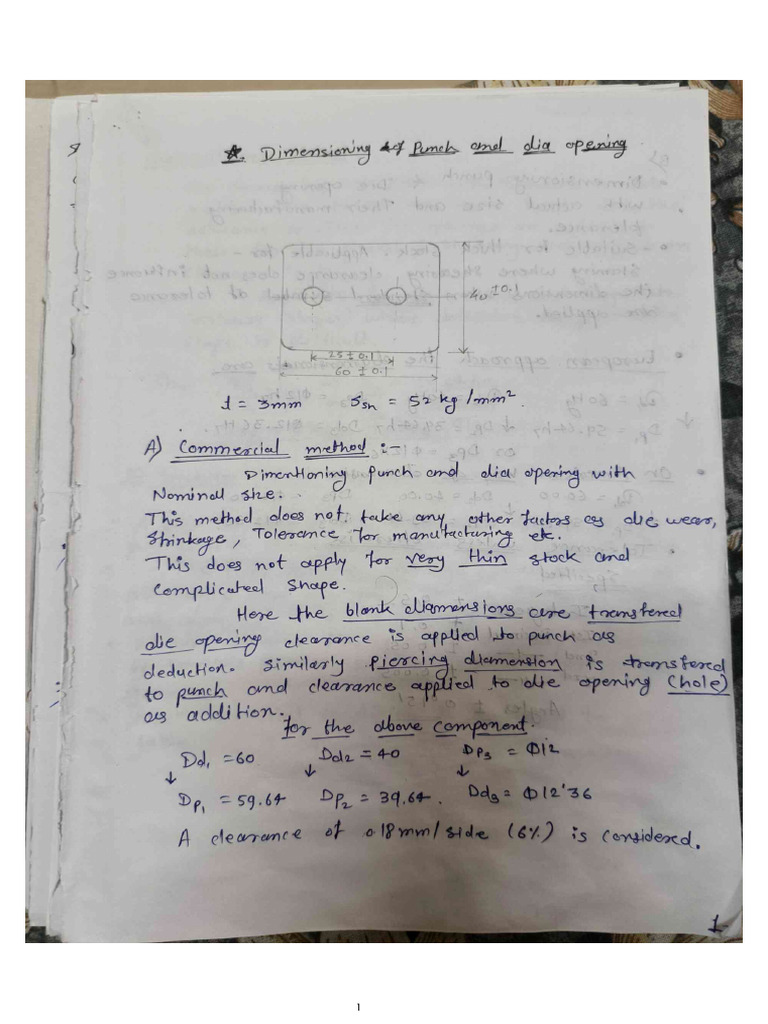 *. Dimensioning of Punch and dia opening
40 ±0.1
25 ± 0.1
60 ± 0.1
t = 3mm Ssh = 52 kg/mm².
A) Commercial method :-
Dimentioning punch and dia opening with
Nominal size.
This method does not take any other factors as die wear,
Shrinkage, Tolerance for manufacturing etc.
This does not apply for very thin stock and
complicated shape.
Here the blank diamensions are transfered
die opening clearance is applied to punch as
deduction. Similarly piercing diamension is transfered
to punch and clearance applied to die opening (hole)
as addition.
for the above component.
Dd₁ = 60 Dd2 = 40 DP3 = Φ12
↓ ↓ ↓
DP₁ = 59.64 DP₂ = 39.64. Dd3 = Φ12.36
A clearance of 0.18mm/side (6%) is considered.
1
1